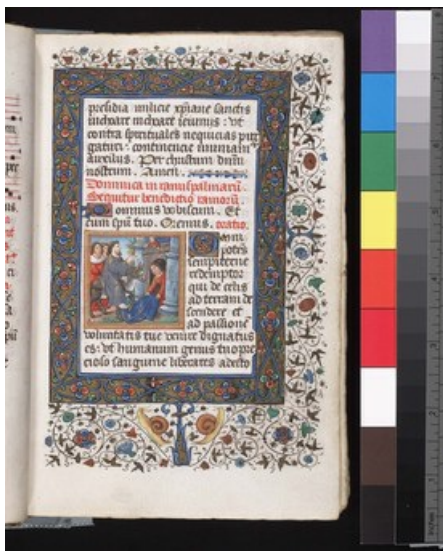 presidia milicie xp̄iane sanctis
inchoare inchoare ieiuniis : vt
contra spirituales nequicias pug
gaturi continencie muniam
auxiliis. Per christum dnm̄
nostrum. Amen.
Dominica in ramis palmarū.
Sequitur benedictio ramorū.
Dominus vobiscum. Et
cum spū tuo. Oremus. oratio.
Omni
potēs
sempiterne
redemptor
qui de celis
ad terram de
scendere et
ad passionē
voluntatis tue venire dignatus
es : vt humanum genus tuo pre
cioso sanguine liberares adesto